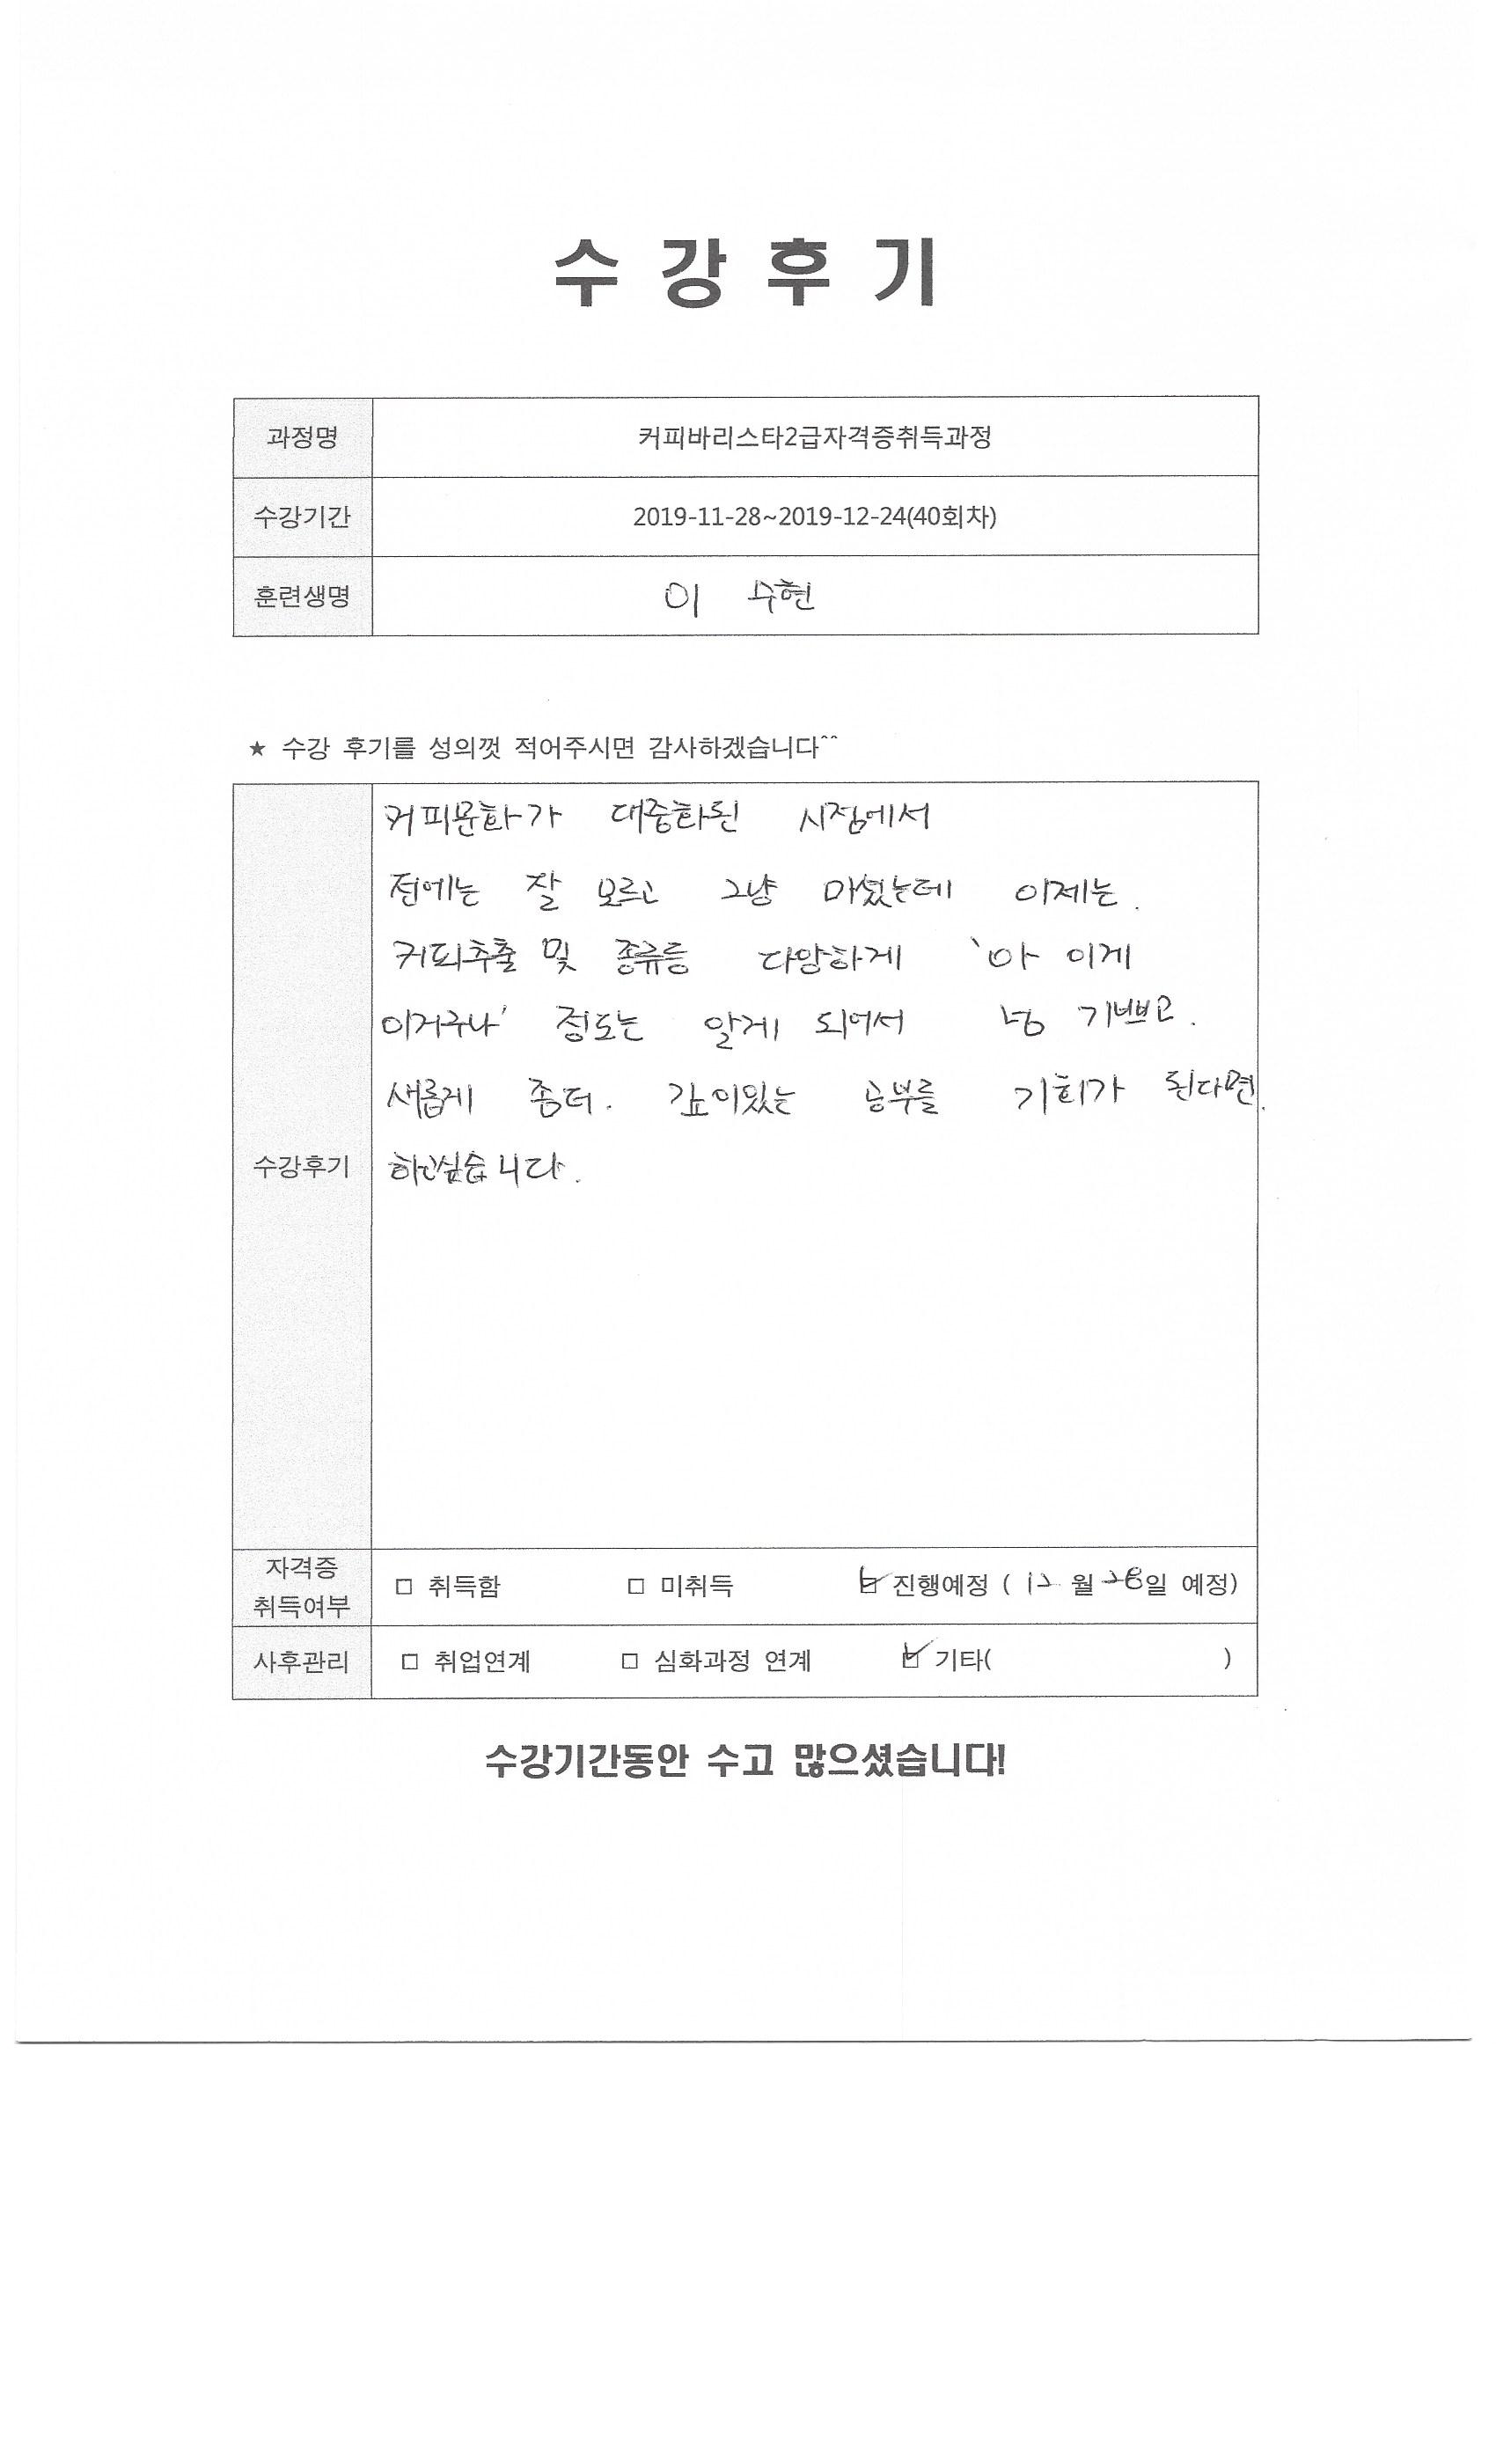 수 강 후 기
과정명 커피바리스타2급자격증취득과정
수강기간 2019-11-28~2019-12-24(40회차)
훈련생명 이 수현
★ 수강 후기를 성의껏 적어주시면 감사하겠습니다^^
커피문화가 대중화된 시점에서
전에는 잘 모르고 그냥 마셨는데 이제는.
커피추출 및 종류등 다양하게 '아 이게
이거구나' 정도는 알게 되어서 넘 기쁘고.
새롭게 좀더. 깊이있는 공부를 기회가 된다면.
수강후기 하고싶습니다.
자격증
취득여부 □ 취득함 □ 미취득 ☑ 진행예정 ( 12 월 28일 예정)
사후관리 □ 취업연계 □ 심화과정 연계 ☑ 기타( )
수강기간동안 수고 많으셨습니다!